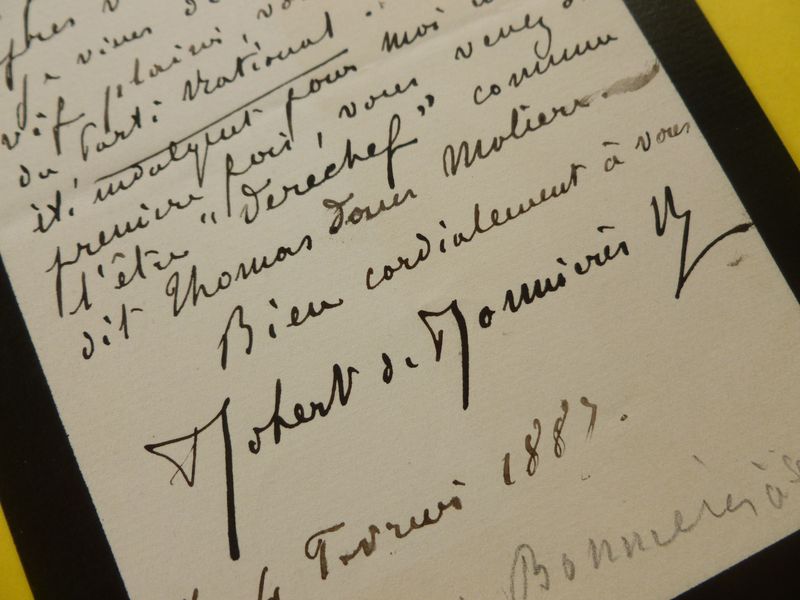 je viens de
vif plaisir, vo
du Parti National"
été indulgent pour moi
première fois, vous venez d
l'être "derechef" comme
dit Thomas dans Molière.
Bien cordialement à vous
Robert de Bonnières
Février 1887.
Bonnières